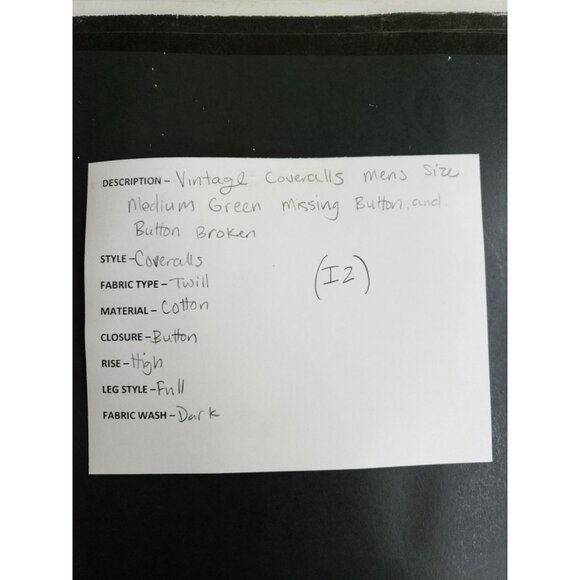 DESCRIPTION - Vintage Coveralls mens Size
Medium Green Missing Button, and
Button Broken
STYLE - Coveralls
FABRIC TYPE - Twill
(I2)
MATERIAL - Cotton
CLOSURE - Button
RISE - High
LEG STYLE - Full
FABRIC WASH - Dark